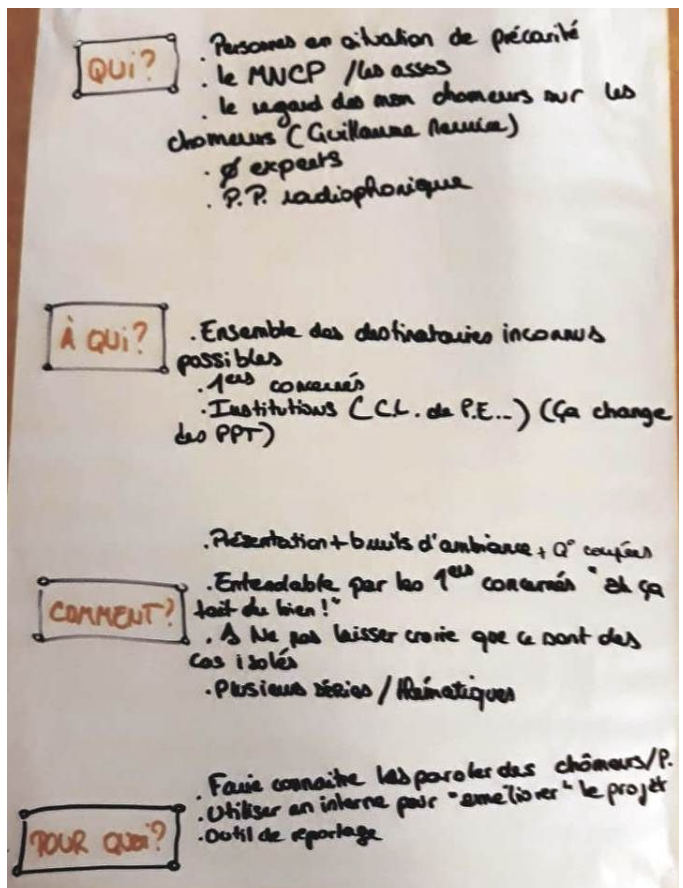 QUI?
. Personnes en situation de précarité
. le MNCP / les assos
. le regard des non chomeurs sur les
chomeurs (Guillaume
. ø experts
. P.P. radiophonique
À QUI?
. Ensemble des destinataires inconnus
possibles
. 1ers concernés
. Institutions (C.L. de P.E...) (ça change
des PPT)
. Présentation + bruits d'ambiance + Q° coupées
COMMENT?
. Entendable par les 1ers concernés "ah ça
fait du bien!"
. Ne pas laisser croire que ce sont des
cas isolés
. Plusieurs séries / thématiques
POUR QUOI?
. Faire connaitre les paroles des chômeurs/P.
. Utiliser en interne pour "améliorer" le projet
. Outil de reportage